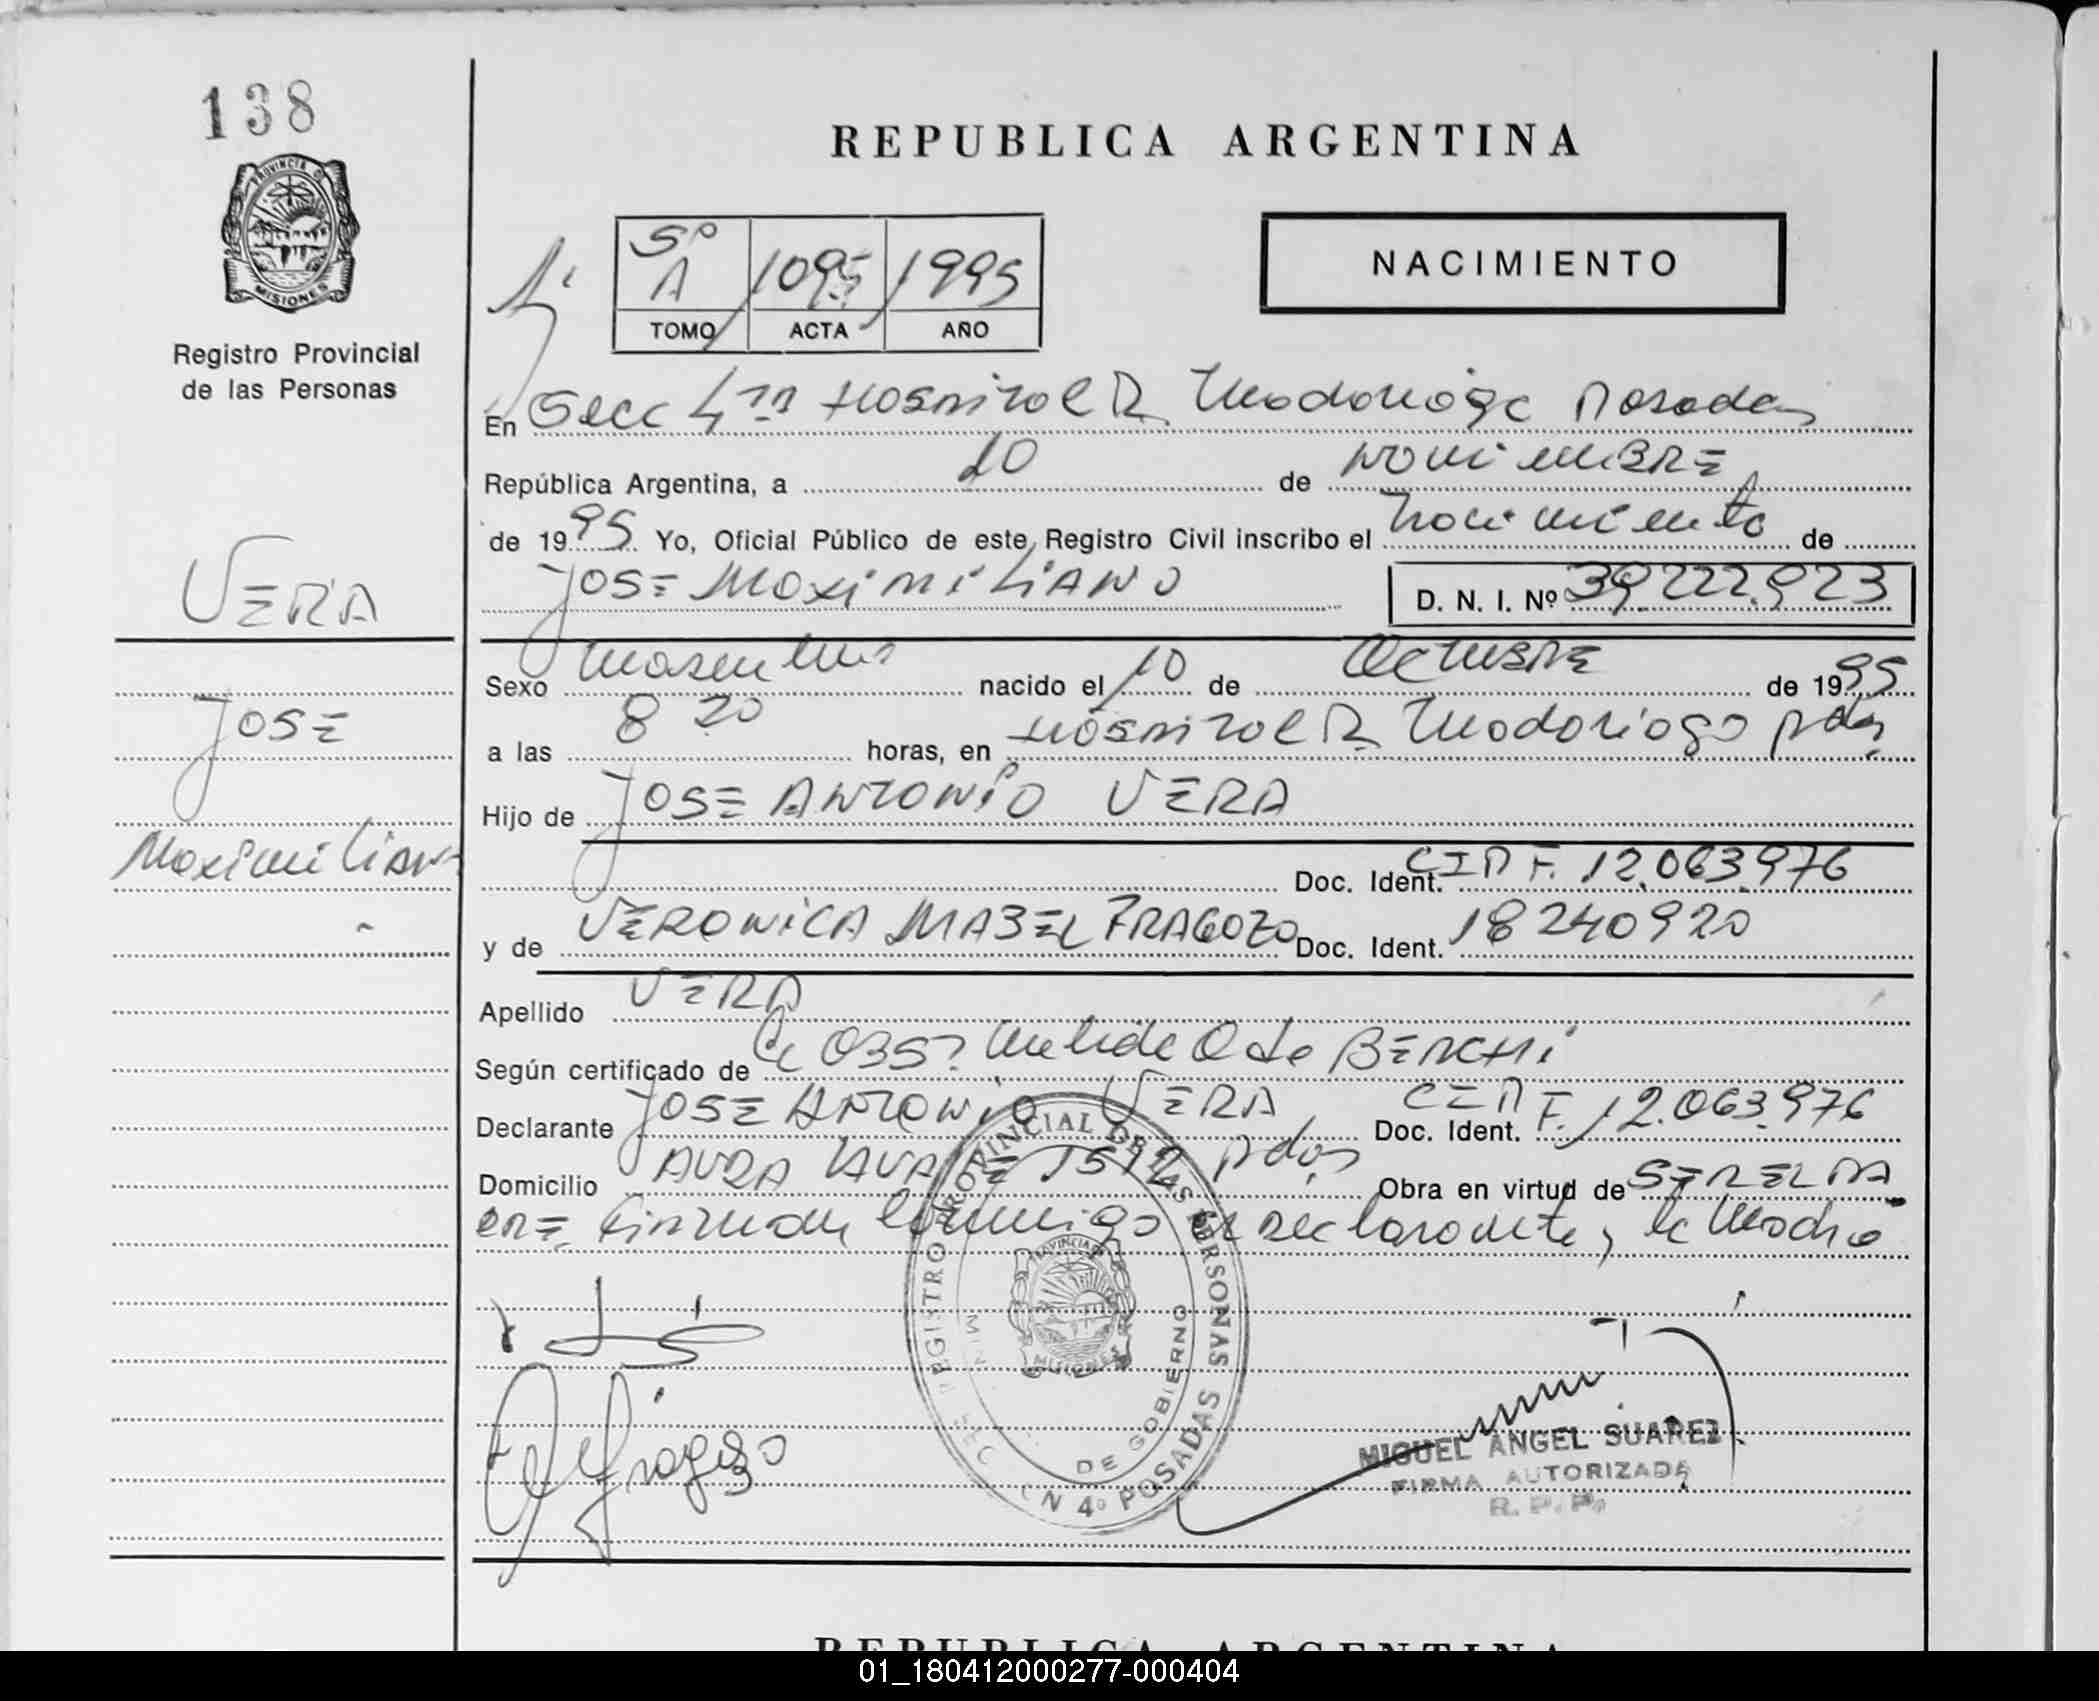 138
REPUBLICA ARGENTINA
PROVINCIA DE
MISIONES
Registro Provincial
de las Personas
5º
A 1095 1995
TOMO ACTA AÑO
NACIMIENTO
En Secc 4ta Hospital R. Madariaga Posadas
República Argentina, a 10 de noviembre
de 1995 Yo, Oficial Público de este Registro Civil inscribo el nacimiento de
JOSE MAXIMILIANO D. N. I. Nº 39.222.923
VERA
JOSE
Maximiliano
Sexo masculino nacido el 10 de Octubre de 1995
a las 8 20 horas, en Hospital R. Madariaga pdas
Hijo de JOSE ANTONIO VERA
Doc. Ident. CIPF. 12.063.976
y de VERONICA MABEL FRAGOZO Doc. Ident. 18240920
Apellido VERA
Según certificado de la Obst
Declarante JOSE ANTONIO VERA Doc. Ident. CIPF. 12.063.976
Domicilio AVDA pdas Obra en virtud de SER EL PA
DRE. Firman conmigo el declarante, la Madre
REGISTRO PROVINCIAL DE LAS PERSONAS
PROVINCIA
MISIONES
MIN DE GOBIERNO
SECCION 4º POSADAS
Fragozo
MIGUEL ANGEL SUAREZ
FIRMA AUTORIZADA
R. P. P.
REPUBLICA ARGENTINA
01_180412000277-000404